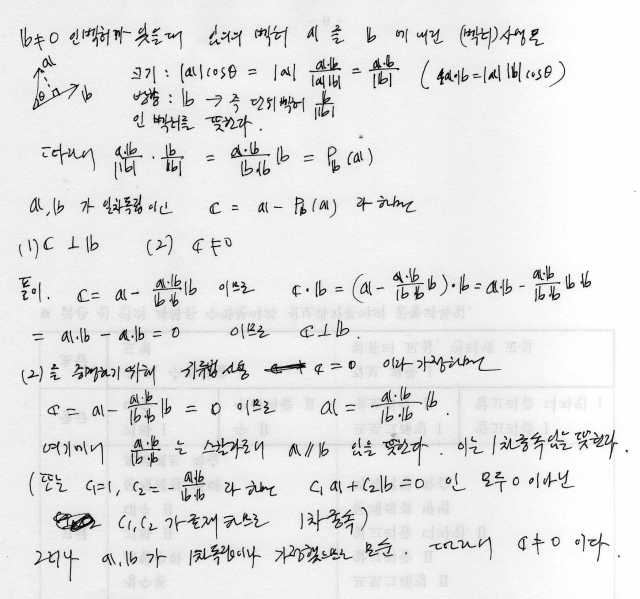 𝕓≠0 인 벡터가 있을 때 임의의 벡터 𝕒 를 𝕓 에 내린 (벡터) 사영은
𝕒 θ 𝕓
크기 : |𝕒|cosθ = |𝕒| 𝕒·𝕓/|𝕒||𝕓| = 𝕒·𝕓/|𝕓| ( 𝕒·𝕓=|𝕒||𝕓|cosθ )
방향 : 𝕓 → 즉 단위벡터 𝕓/|𝕓|
인 벡터를 뜻한다.
따라서 𝕒·𝕓/|𝕓| · 𝕓/|𝕓| = 𝕒·𝕓/𝕓·𝕓 𝕓 = P𝕓(𝕒)
𝕒, 𝕓 가 일차독립이고 𝕔 = 𝕒 - P𝕓(𝕒) 라 하면
(1) 𝕔 ⊥ 𝕓 (2) 𝕔 ≠ 0
풀이. 𝕔 = 𝕒 - 𝕒·𝕓/𝕓·𝕓 𝕓 이므로 𝕔·𝕓 = (𝕒 - 𝕒·𝕓/𝕓·𝕓 𝕓)·𝕓 = 𝕒·𝕓 - 𝕒·𝕓/𝕓·𝕓 𝕓·𝕓
= 𝕒·𝕓 - 𝕒·𝕓 = 0 이므로 𝕔 ⊥ 𝕓.
(2)를 증명하기 위해 귀류법 사용 𝕔 = 0 이라 가정하면
𝕔 = 𝕒 - 𝕒·𝕓/𝕓·𝕓 𝕓 = 0 이므로 𝕒 = 𝕒·𝕓/𝕓·𝕓 𝕓.
여기에서 𝕒·𝕓/𝕓·𝕓 는 스칼라로서 𝕒 // 𝕓 임을 뜻한다. 이는 1차종속임을 뜻한다.
(또는 C₁=1, C₂=- 𝕒·𝕓/𝕓·𝕓 라 하면 C₁𝕒 + C₂𝕓 = 0 인 모두 0이 아닌
C₁, C₂ 가 존재하므로 1차종속)
그러나 𝕒, 𝕓 가 1차독립이라 가정했으므로 모순. 따라서 𝕔 ≠ 0 이다.